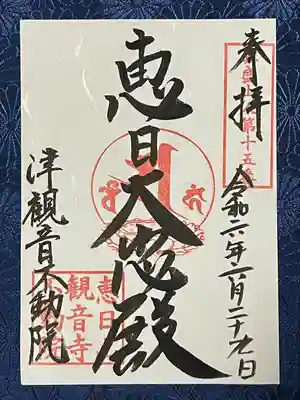 奉拝
第十五番
令和六年六月二十九日
恵日大悲殿
津観音不動院
恵日
観音寺